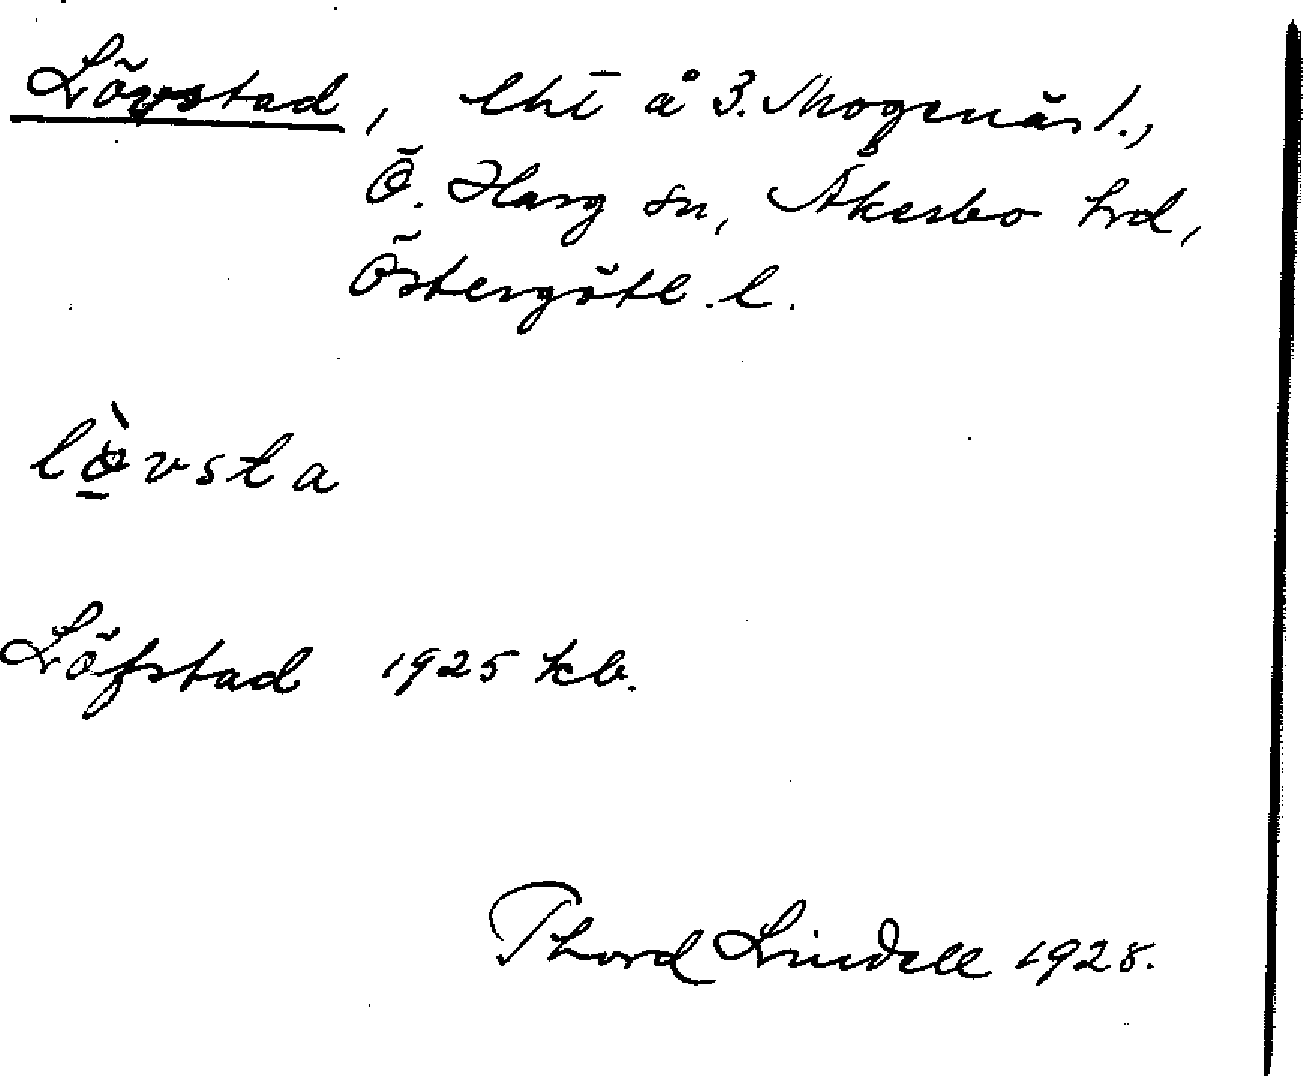 Lövstad, lht å 3. Mogenäs l.,
Ö. Harg sn, Åkerbo hrd,
Östergötl. l.
lò̱vsta
Löfstad 1925 kb.
Thord Lindell 1928.